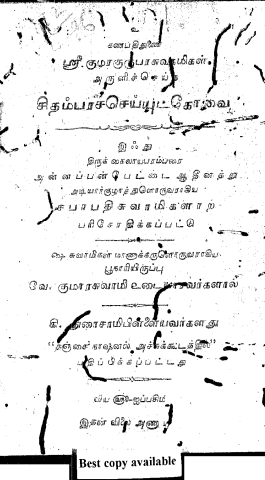 உ
கணபதிதுணை
ஸ்ரீ குமரகுருபரசுவாமிகள்
அருளிச்செய்த
சிதம்பரச்செய்யுட்கோவை
இஃது
திருக்கைலாயபரம்பரை
அடியார்குழாத்துளொருவராகிய
சபாபதிசுவாமிகளாற்
பரிசோதிக்கப்பட்டு
ஷை சுவாமிகள் மாணாக்கருளொருவராகிய
பூவாரியிருப்பு
வே. குமாரசுவாமி உடையாரவர்களால்
கி. துரைசாமிபிள்ளையவர்களது
அச்சுக்கூடத்தில்"
பதிப்பிக்கப்பட்டது
விய ஐப்பசிமீ
இதன் விலை அணா
Best copy available